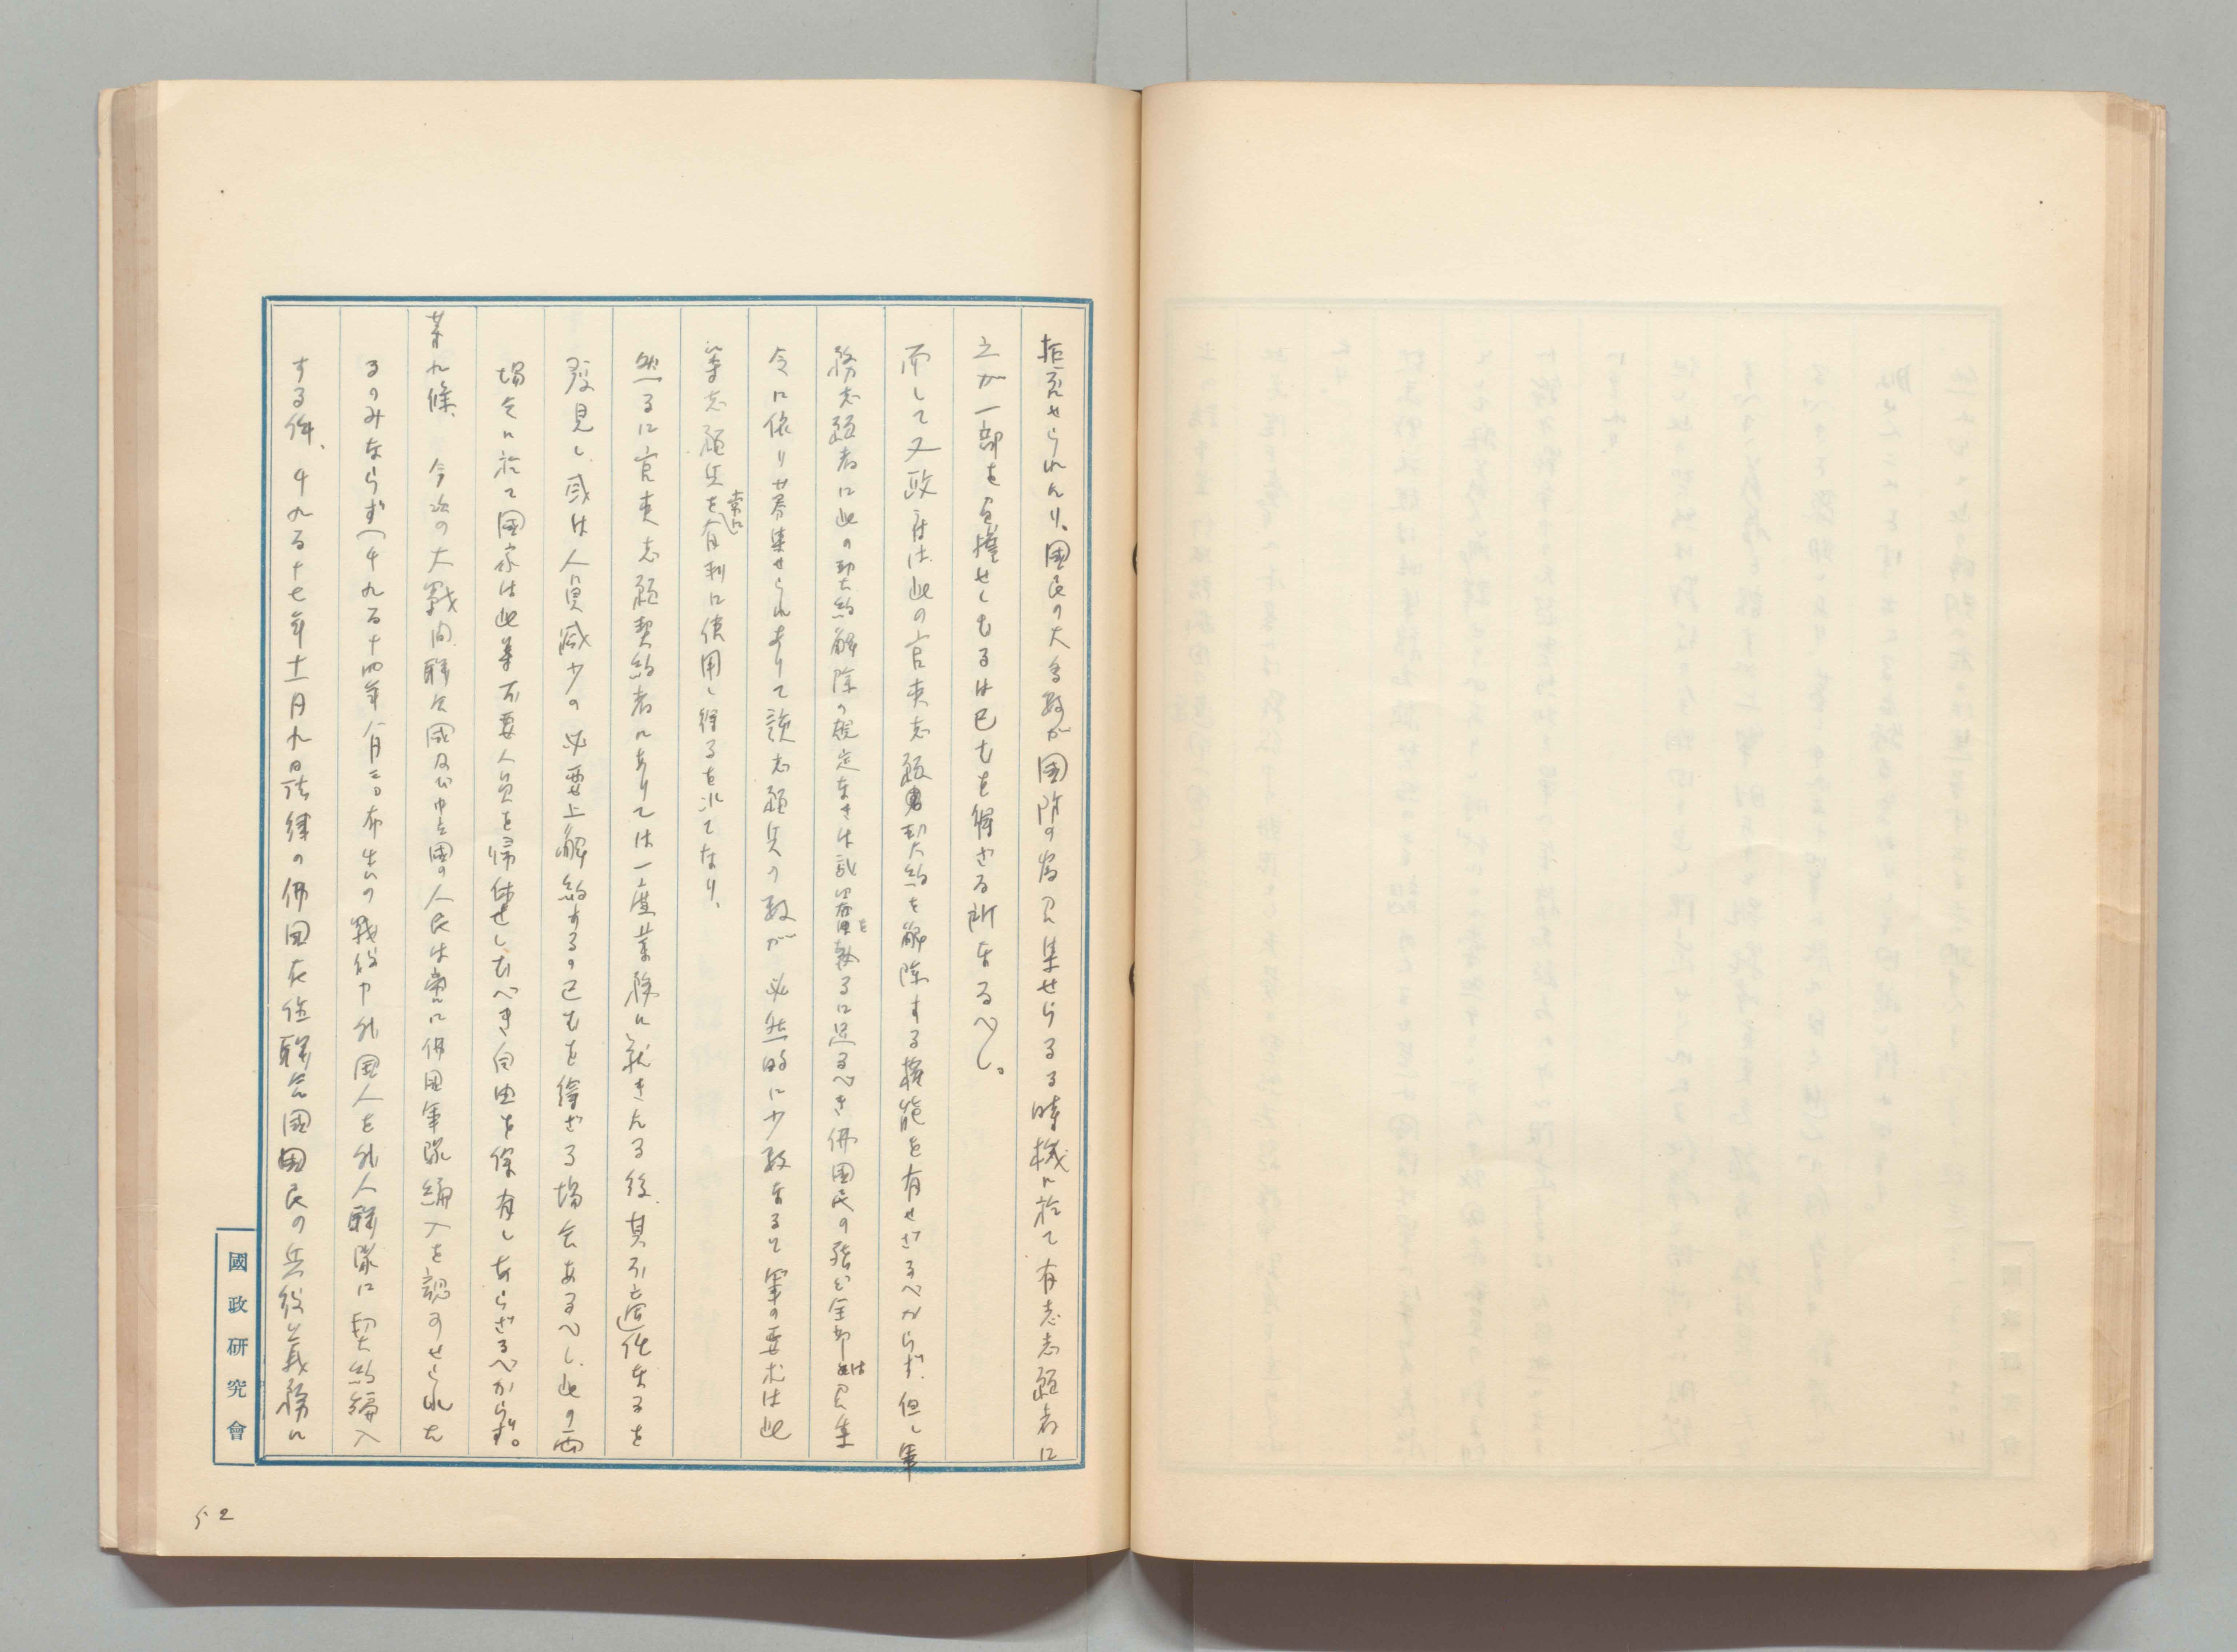 拒否せられたり。國民の大多数が国防の為召集せらるる時機に於て有志志願者に
之が一部を負擔せしむるは已むを得ざる所なるべし。
而して又政府は此の官吏志願契約を解除する権能を有せざるべからず。但し軍
務志願者に此の契約解除の規定なきは武器を執るに足るべき佛国民の殆ど全部は召集
令に依り召集せられありて該志願兵の数が必然的に少数なると軍の要求は此
等志願兵を常に有利に使用し得るを以てなり。
然るに官吏志願契約者にありては一度業務に就きたる後、其不適任なるを
發見し或は人員減少の必要上解約するの已むを得ざる場合あるべし、此の両
場合に於て国家は此等不要人員を帰休せしむべき自由を保有しあらざるべからず。
第九條、今次の大戰間聯合國及び中立國の人民は常に佛国軍隊編入を認可せられた
るのみならず(千九百十四年八月三日布告の戦役中外国人を外人聯隊に契約編入
する件、千九百十七年十一月九日法律の佛国在住聯合國国民の兵役義務に
國政研究會
52